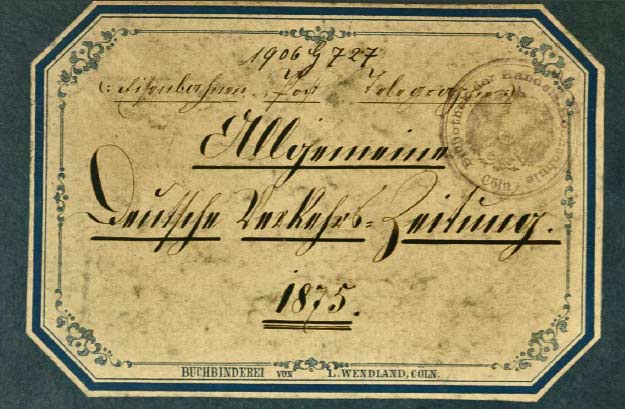 1906 G 727
(: Eisenbahnen, Post Telegraphie :)
Bibliothek der Handels-Hochschule
Cöln
Allgemeine
Deutsche Verkehrs-Zeitung.
1875.
BUCHBINDEREI VON L. WENDLAND, CÖLN.